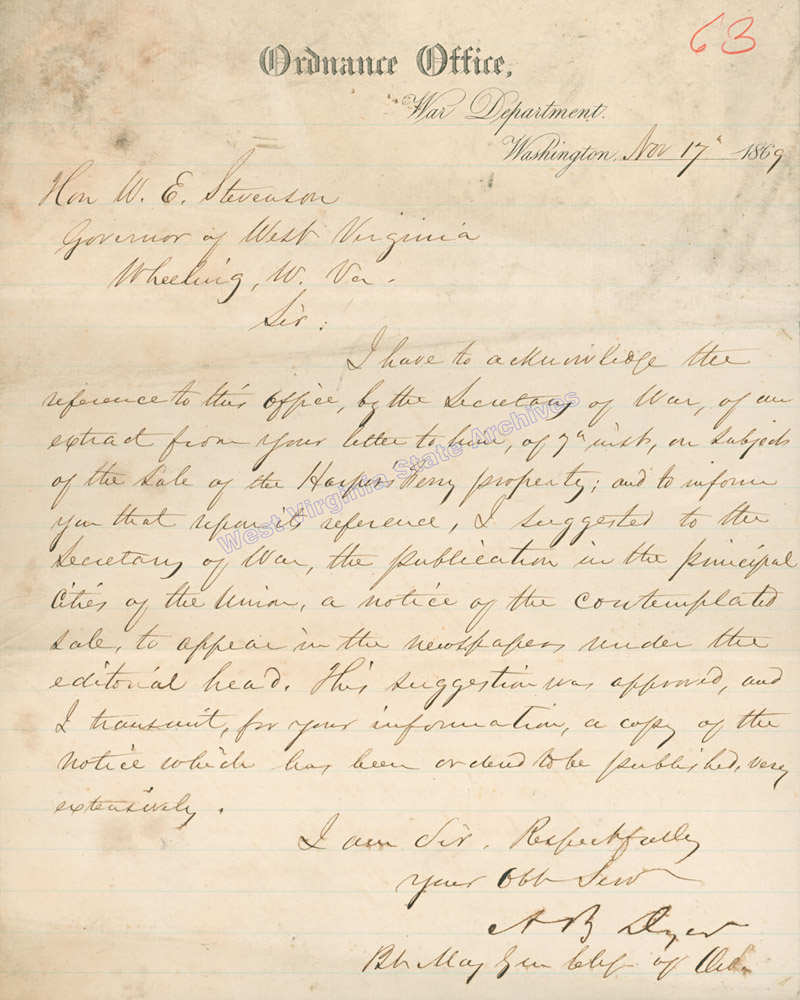 63
Ordnance Office,
War Department.
Washington, Nov 17th 1869
Hon W. E. Stevenson
Governor of West Virginia
Wheeling, W. Va.
Sir:
I have to acknowledge the
reference to this office, by the Secretary of War, of an
extract from your letter to him, of 9th inst, on subject
of the Sale of the Harpers Ferry property; and to inform
you that upon its reference, I suggested to the
Secretary of War, the publication in the principal
Cities of the Union, a notice of the contemplated
sale, to appear in the newspapers under the
editorial head. This suggestion was approved, and
I transmit, for your information, a copy of the
notice which has been ordered to be published, very
extensively.
I am Sir, Respectfully
your Obt Servt
A B Dyer
Bt Maj Gen Chf of Ord.
West Virginia State Archives